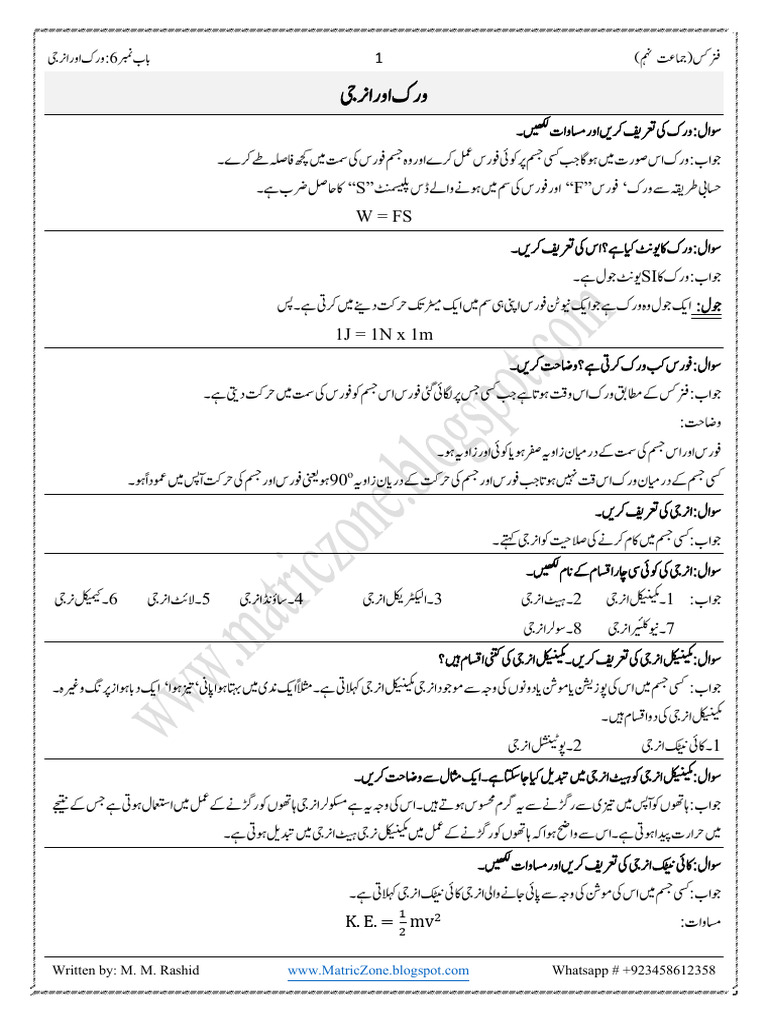 فزکس (جماعت نہم) 1 باب نمبر6: ورک اور انرجی
ورک اور انرجی
سوال: ورک کی تعریف کریں اور مساوات لکھیں۔
جواب: ورک اس صورت میں ہوگا جب کسی جسم پر کوئی فورس عمل کرے اور وہ جسم فورس کی سمت میں کچھ فاصلہ طے کرے۔
حسابی طریقہ سے ورک، فورس “F” اور فورس کی سم میں ہونے والے ڈس پلیسمنٹ “S” کا حاصل ضرب ہے۔
W = FS
سوال: ورک کا یونٹ کیا ہے؟ اس کی تعریف کریں۔
جواب: ورک کا SI یونٹ جول ہے۔
جول: ایک جول وہ ورک ہے جو ایک نیوٹن فورس اپنی ہی سم میں ایک میٹر تک حرکت دینے میں کرتی ہے۔ پس
1J = 1N x 1m
سوال: فورس کب ورک کرتی ہے؟ وضاحت کریں۔
جواب: فزکس کے مطابق ورک اس وقت ہوتا ہے جب کسی جس پر لگائی گئی فورس اس جسم کو فورس کی سمت میں حرکت دیتی ہے۔
وضاحت:
فورس اور اس جسم کی سمت کے درمیان زاویہ صفر ہو یا کوئی اور زاویہ ہو۔
کسی جسم کے درمیان ورک اس قت نہیں ہوتا جب فورس اور جسم کی حرکت کے دریان زاویہ 90° ہو یعنی فورس اور جسم کی حرکت آپس میں عموداً ہو۔
سوال: انرجی کی تعریف کریں۔
جواب: کسی جسم میں کام کرنے کی صلاحیت کو انرجی کہتے۔
سوال: انرجی کی کوئی سی چار اقسام کے نام لکھیں۔
جواب: 1۔ مکینیکل انرجی 2۔ ہیٹ انرجی 3۔ الیکٹریکل انرجی 4۔ ساؤنڈ انرجی 5۔ لائٹ انرجی 6۔ کیمیکل نرجی
7۔ نیوکلئیر انرجی 8۔ سولر انرجی
سوال: مکینیکل انرجی کی تعریف کریں۔ مکینیکل انرجی کی کتنی اقسام ہیں؟
جواب: کسی جسم میں اس کی پوزیشن یا موشن یا دونوں کی وجہ سے موجود انرجی مکینیکل انرجی کہلاتی ہے۔ مثلاً ایک ندی میں بہتا ہوا پانی، تیز ہوا، ایک دبا ہوا زپرنگ وغیرہ۔
مکینیکل انرجی کی دو اقسام ہیں۔
1۔ کائی نیٹک انرجی 2۔ پوٹینشل انرجی
سوال: مکینیکل انرجی کو ہیٹ انرجی میں تبدیل کیا جا سکتا ہے۔ ایک مثال سے وضاحت کریں۔
جواب: ہاتھوں کو آپس میں تیزی سے رگڑنے سے یہ گرم محسوس ہوتے ہیں۔ اس کی وجہ یہ ہے مسکولر انرجی ہاتھوں کو رگڑنے کے عمل میں استعمال ہوتی ہے جس کے نتیجے
میں حرارت پیدا ہوتی ہے۔ اس سے واضح ہوا کہ ہاتھوں کو رگڑنے کے عمل میں مکینیکل نرجی ہیٹ انرجی میں تبدیل ہوتی ہے۔
سوال: کائی نیٹک انرجی کی تعریف کریں اور مساوات لکھیں۔
جواب: کسی جسم میں اس کی موشن کی وجہ سے پائی جانے والی انرجی کائی نیٹک انرجی کہلاتی ہے۔
مساوات: K. E. = ½ mv²
Written by: M. M. Rashid www.MatricZone.blogspot.com Whatsapp # +923458612358
www.matriczone.blogspot.com